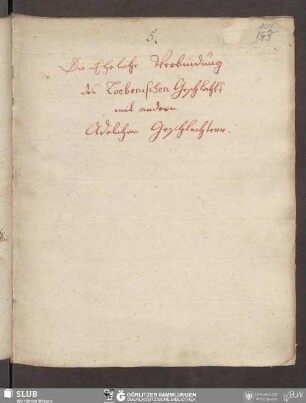 5.
143
Die Eheliche Verbindung
des Loebenischen Geschlechts
mit andern
Adelichen Geschlechtern.
SLUB
Wir führen Wissen.
GÖRLITZER SAMMLUNGEN
OBERLAUSITZISCHE BIBLIOTHEK